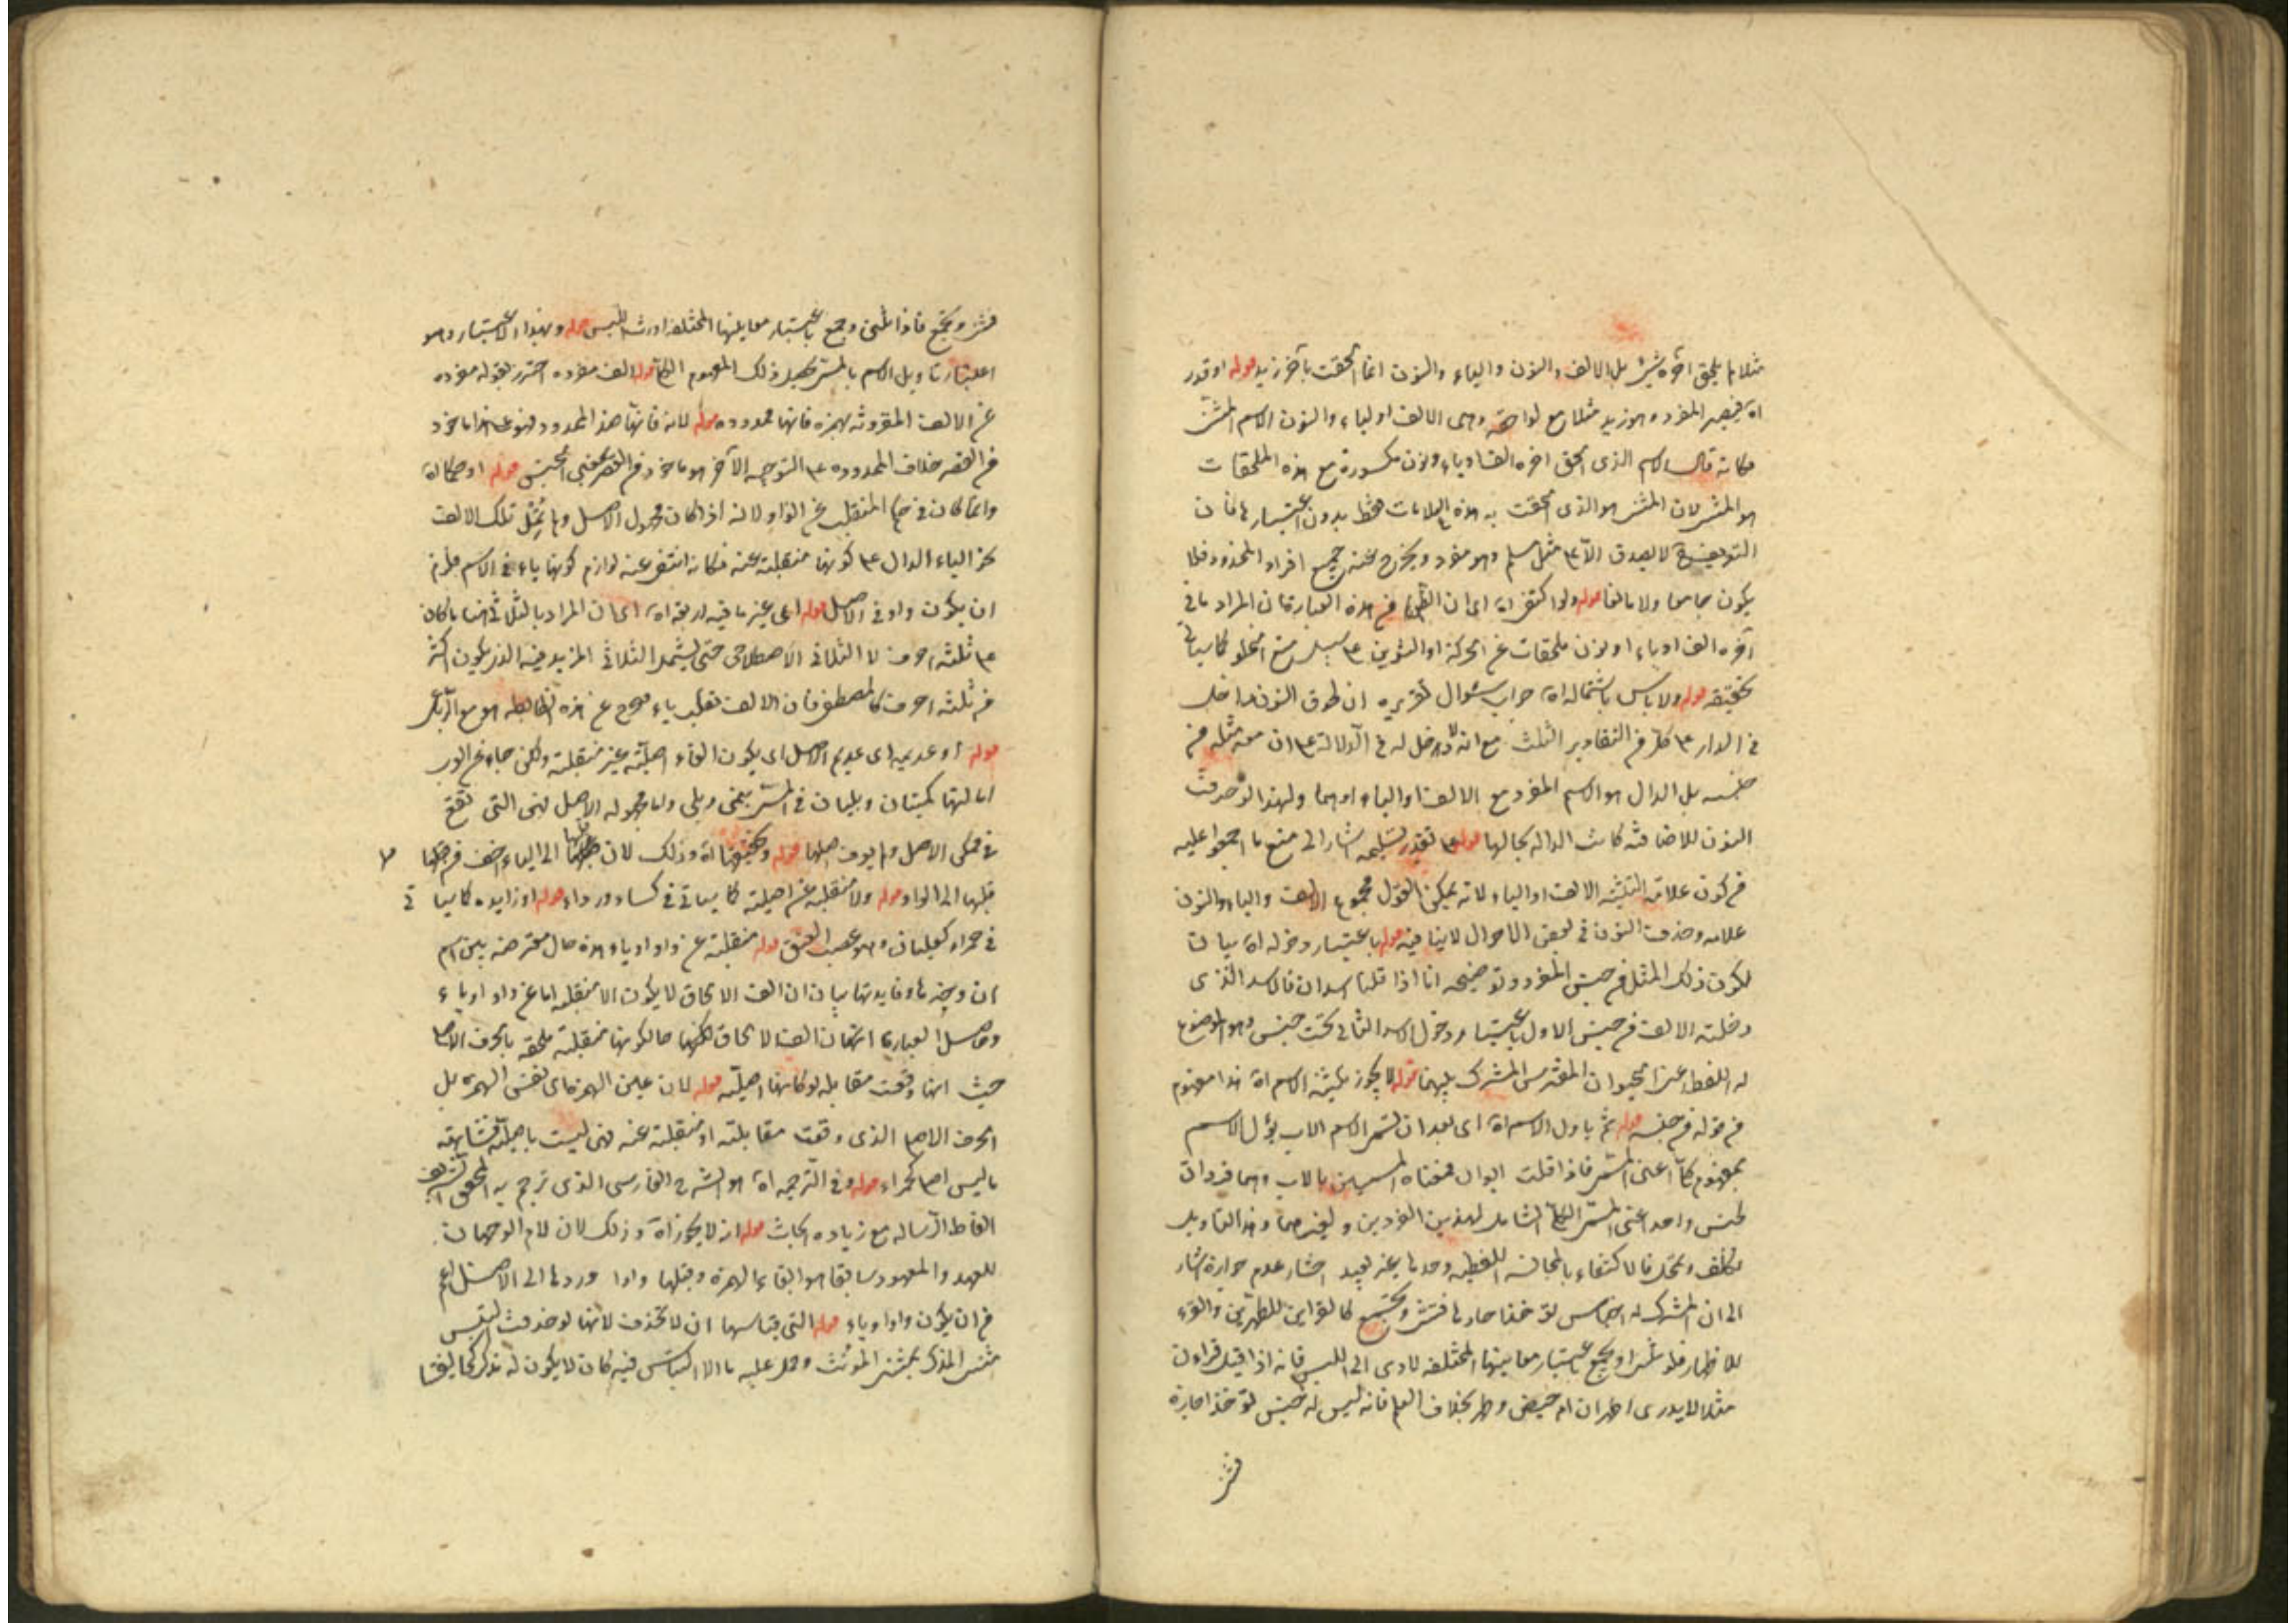 مثلا لم يلحق آخره شيء بل الالف والنون والياء والنون انما الحقت بآخر زيد قوله او قدر
اه فيصير المفرد وهو زيد مثلا مع لواحقه وهى الالف او الياء والنون الاسم المثنى
فكانه قال الاسم الذى الحق اخره الف او ياء ونون مكسورة مع هذه الملحقات
هو المثنى لان المثنى هو الذى الحقت به هذه العلامات فقط بدون اعتبارها فان
التعريف لا يصدق الا على مثل مسلم وهو مفرد ويخرج عنه جميع افراد المحدود فلا
يكون جامعا ولا مانعا قوله ولو اكتفى اه اى ان هذه العبارة فان المراد ما فى
آخره الف او ياء او نون ملحقات عن الحركة او التنوين على سبيل منع الخلو كما سيأتى
تحقيقه قوله ولا بأس باشتماله اه جواب سؤال تقريره ان لحوق النون داخل
فى الدال على كل من التقادير الثلث مع انه لا دخل له فى الدلالة على ان معه مثله من
جنسه بل الدال هو الاسم المفرد مع الالف او الياء او هما ولهذا لو حذفت
النون للاضافة كانت الدالة بحالها قوله على تقدير تسليمه اشار الى منع ما اجمعوا عليه
من كون علامة التثنية الالف او الياء لانه يمكن القول مجموع الالف والياء والنون
علامه وحذف النون فى بعض الاحوال لا ينافيه قوله باعتبار دخوله اه بيان
لكون ذلك المثل من جنس المفرد وتوضيحه انا اذا قلنا اسدان فالاسد الذى
دخلته الالف من جنس الاول باعتبار دخول الاسد الثانى تحت جنس وهو الموضوع
له اللفظ اعنى الحيوان المفترس المشترك بينهما قوله لا يجوز تثنية الاسم اه هذا مفهوم
من قوله من جنسه قوله ثم ياول الاسم اه اى بعد ان يسمى الاسم الاب يؤل الاسم
بمفهوم كلى اعنى المسمى فاذا قلت ابوان فمعناه المسميين بالاب وهما فردان
لجنس واحد اعنى المسمى الشامل لهذين الفردين ولغيرهما وهذا التاويل
تكلف وتمحل فالاكتفاء بالمجانسة اللفظيه وحدها غير بعيد اختار عدم جوازه اشار
الى ان المشترك له اجناس
للاظهار فلو ثنى او جمع باعتبار معانيها المختلفه لادى الى اللبس فانه اذا قيل قراءن
مثلا لا يدرى اطهران ام حيض وطهر بخلاف العلم فانه ليس له جنس
فثنى
فثنى وجمع فاذا ثنى وجمع باعتبار معانيها المختلفه اورث اللبس قوله وبهذا الاعتبار وهو
اعتبار تاويل الاسم بالمسمى ذلك المفهوم قوله الف مفرده احترز بقوله مفرده
عن الالف المقرونة بهمزه فانها ممدوده قوله لانه هذا الممدود فهو على هذا ماخوذ
من القصر خلاف الممدوده على التوجيه الآخر هو ماخوذ من القصر بمعنى الحبس قوله او حكما اه
وانما كان فى حكم المنقلب عن الواو لانه اذا كان مجهول الاصل ولم تمل تلك الالف
نحو الياء الدال على كونها منقلبة عنه فكانه انتفى عنه لوازم كونها ياء فى الاسم فلزم
ان يكون واو فى الاصل قوله اى غير ما فيه اربعة اه اى ان المراد بالثلاثى هنا ما كان
على ثلثه احرف لا الثلاثى الاصطلاحى حتى يشمل الثلاثى المزيد فيه الذى يكون اكثر
من ثلثه احرف كالمصطفى فان الالف تقلب ياء
قوله او عديمه اى عديم الاصل اى يكون الفاء اصلية غير منقلبة ولكن جاء عن العرب
امالتها كمتيان وبليان فى المسمى بمتى وبلى واما مجهوله الاصل فهى التى تقع
فى متمكن الاصل ولم يعرف اصلها قوله اه وذلك لان قلبها الى الياء اخف من
قلبها الى الواو قوله ولا منقلبه عن اصليه كما سياتى فى كساء ورداء قوله او زايده كما سيا تى
فى حمراء كعلباء وهو عصب العنق قوله منقلبة عن واو او ياء هذه حال معترضه بين اسم
ان وخبرها وفايدتها بيان ان الف الالحاق لا يكون الا منقلبه اما عن واو او ياء
وحاصل العباره انه ان الف الالحاق لكنها حال كونها منقلبة ملحقه بالحرف الاصلى
حيث انها وقعت مقابله لو كانها اصلية قوله لان عين الهمزه اى نفس الهمزه بل
الحرف الاصلى الذى وقعت مقابلته او منقلبة عنه فهى ليست باصليه فشابهت
ما ليس اصلى كحمراء قوله وفى الترجمه اه هو الشرح الفارسى الذى ترجم به المحقق الشريف
الفاظ الرساله مع زياده ابحاث قوله اذ لا يجوز اه وذلك لان لام الوجهان
للعهد والمعهود سابقا هو ابقاء الهمزه وقلبها واوا وردها الى الاصل اعم
من ان يكون واوا او ياء قوله التى قياسها ان لا تحذف لانها لو حذفت التبس
مثنى المذكر بمثنى المؤنث وحمل عليه ما لا التباس فيه كان لا يكون له